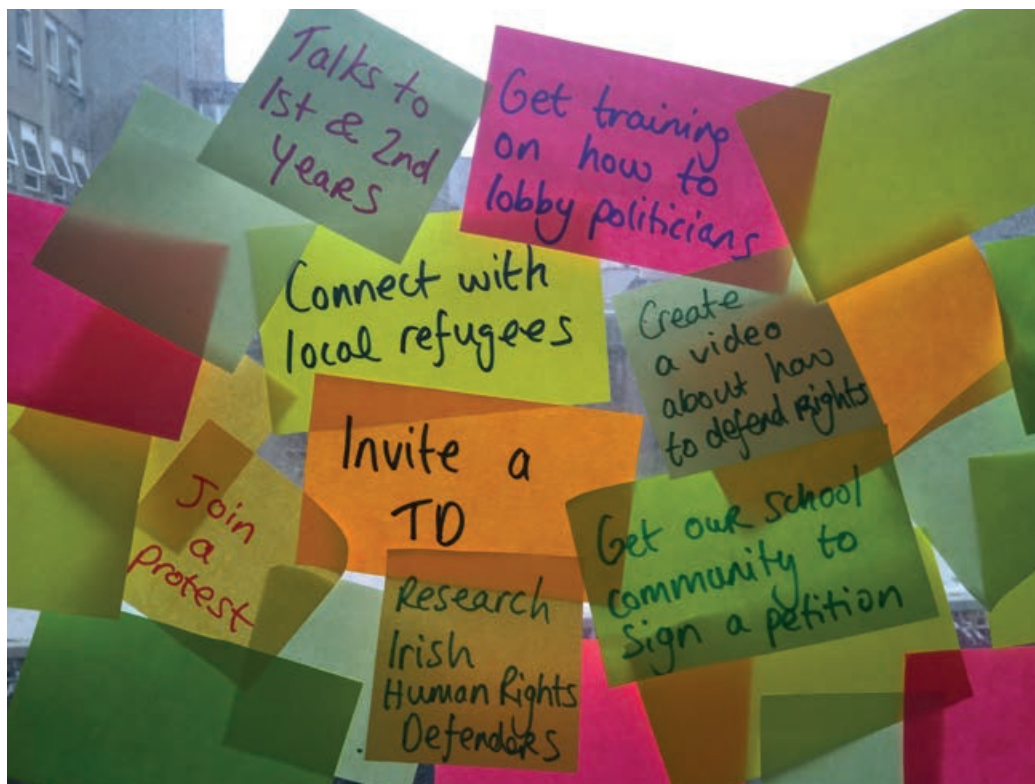 Talks to
1st & 2nd
years
Get training
on how to
lobby politicians
Connect with
local refugees
Create
a video
about how
to defend Rights
Invite a
TD
Join
a
protest
Get our school
community to
sign a petition
Research
Irish
Human Rights
Defenders